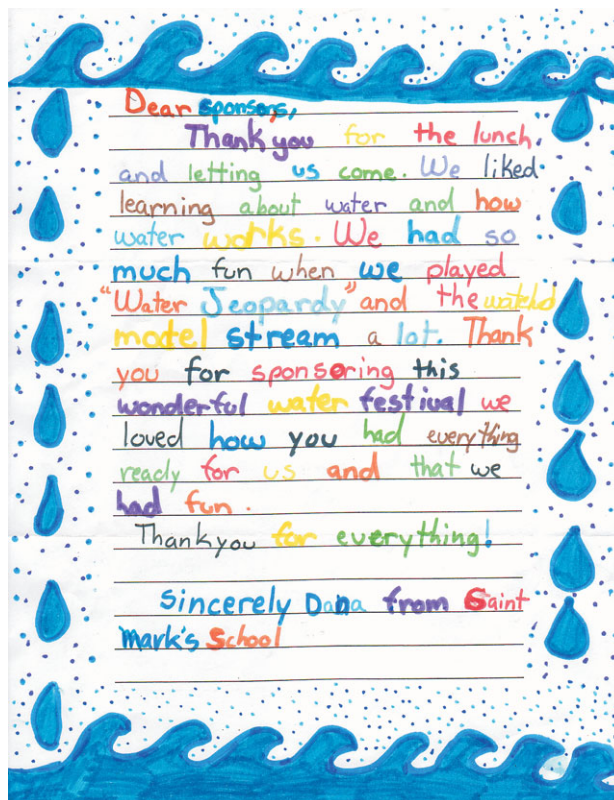 Dear sponsors,
Thank you for the lunch
and letting us come. We liked
learning about water and how
water works. We had so
much fun when we played
"Water Jeopardy" and the watershed
model stream a lot. Thank
you for sponsoring this
wonderful water festival we
loved how you had everything
ready for us and that we
had fun.
Thank you for everything!
Sincerely Dana from Saint
Mark's School